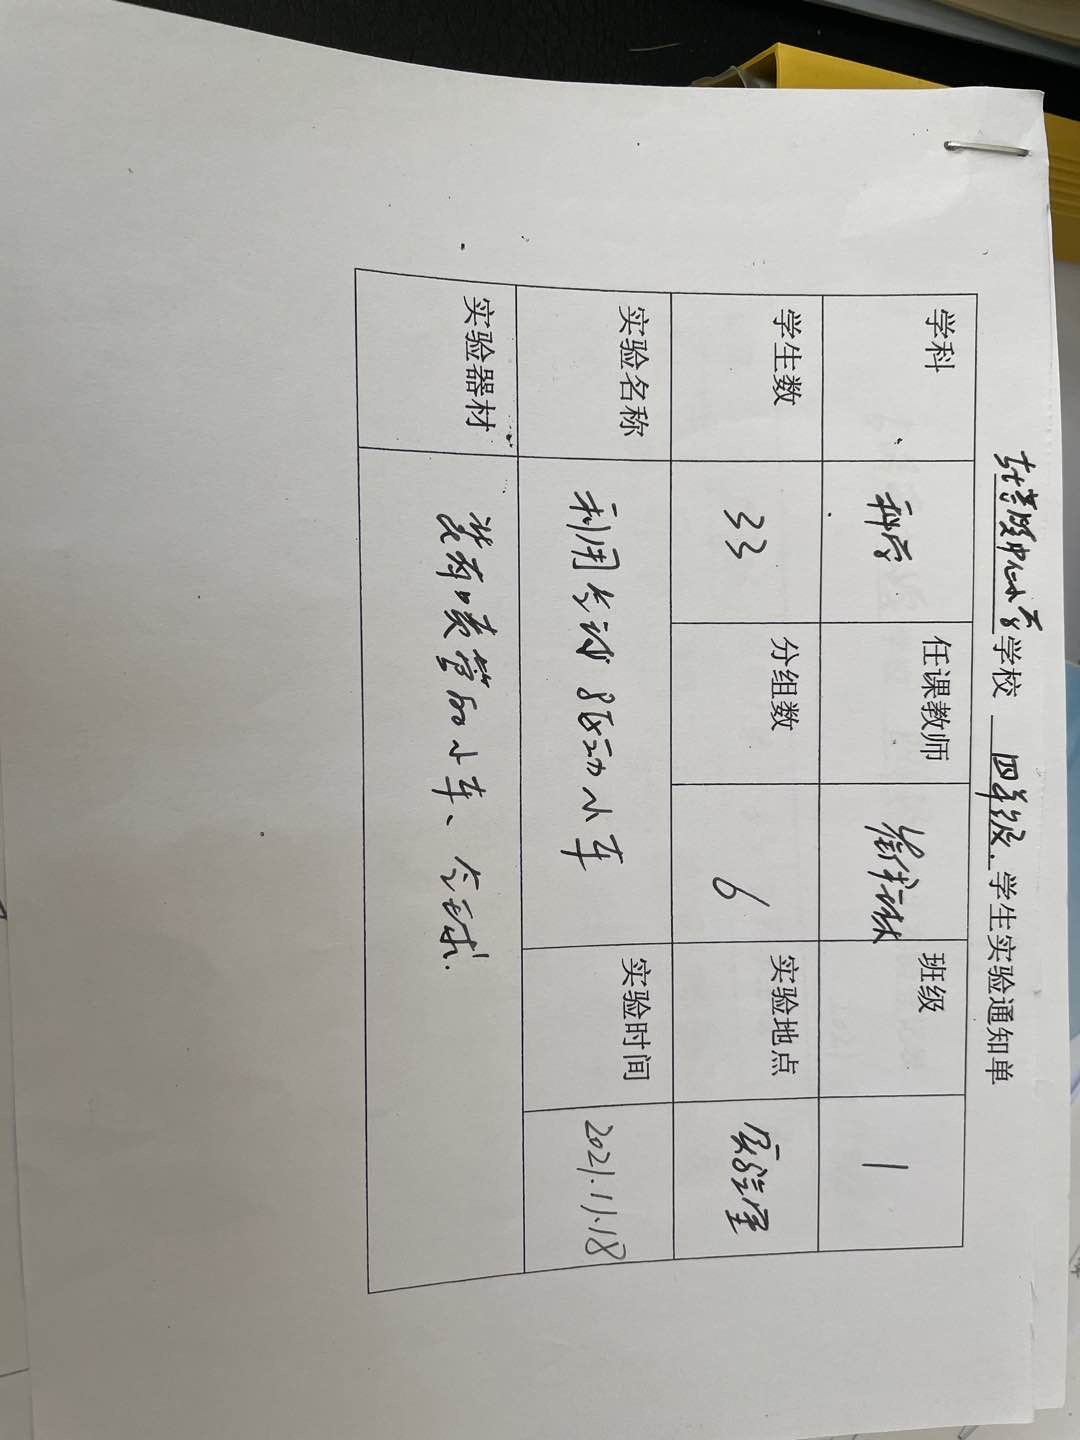 中心小学学校 四年级 学生实验通知单
学科 科学 任课教师 班级 1
学生数 33 分组数 6 实验地点 实验室
实验名称 利用气球驱动小车 实验时间 2021.11.18
实验器材 装有喷管的小车、气球.